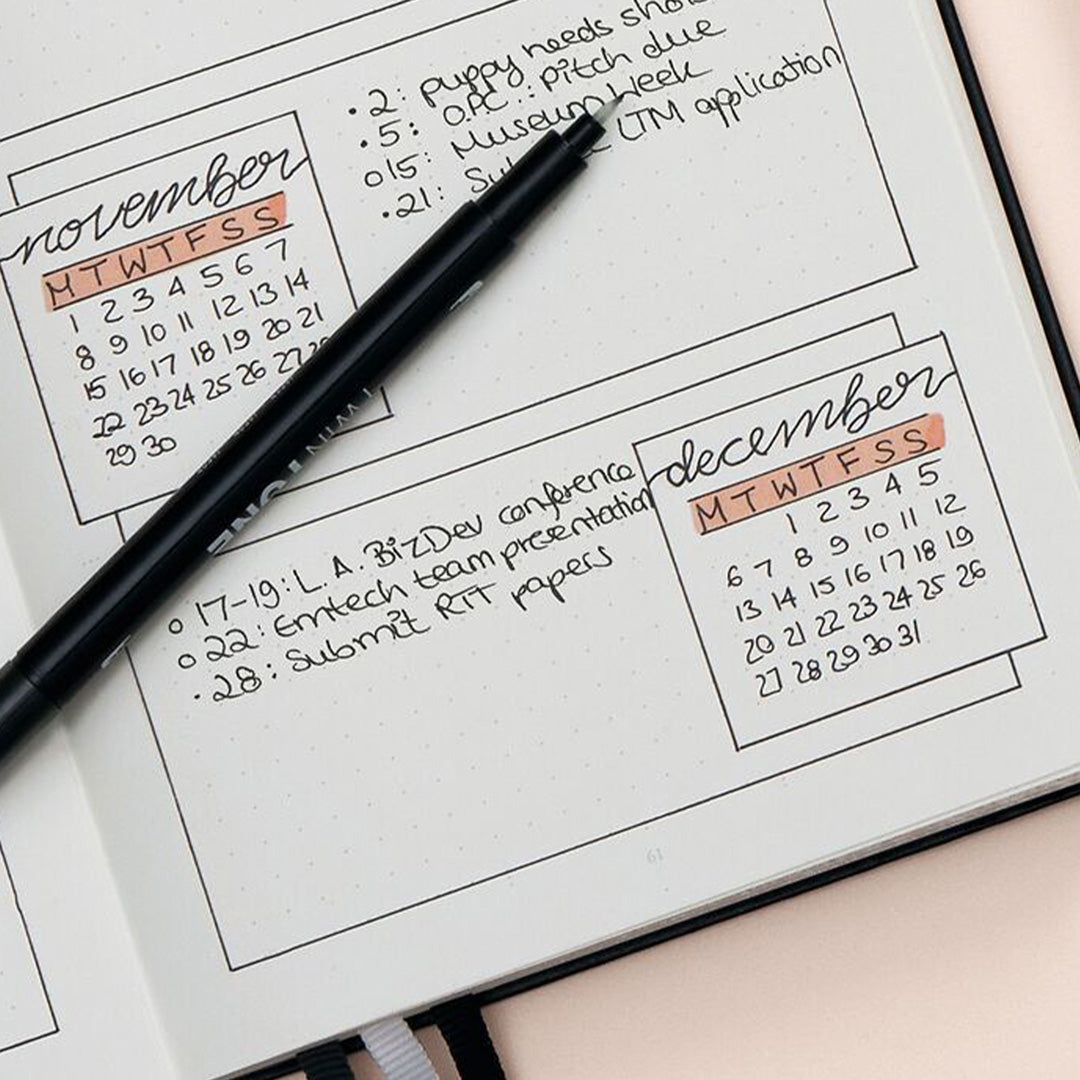 • 2: puppy needs
• 5: O.P.C.: pitch due
o 15: Museum Week
• 21: LTM application
november
M T W T F S S
1 2 3 4 5 6 7
8 9 10 11 12 13 14
15 16 17 18 19 20 21
22 23 24 25 26 27
29 30
december
M T W T F S S
1 2 3 4 5
6 7 8 9 10 11 12
13 14 15 16 17 18 19
20 21 22 23 24 25 26
27 28 29 30 31
o 17-19: L.A. BizDev conference
o 22: Emtech team presentation
• 28: Submit RTT papers
TWIN
61